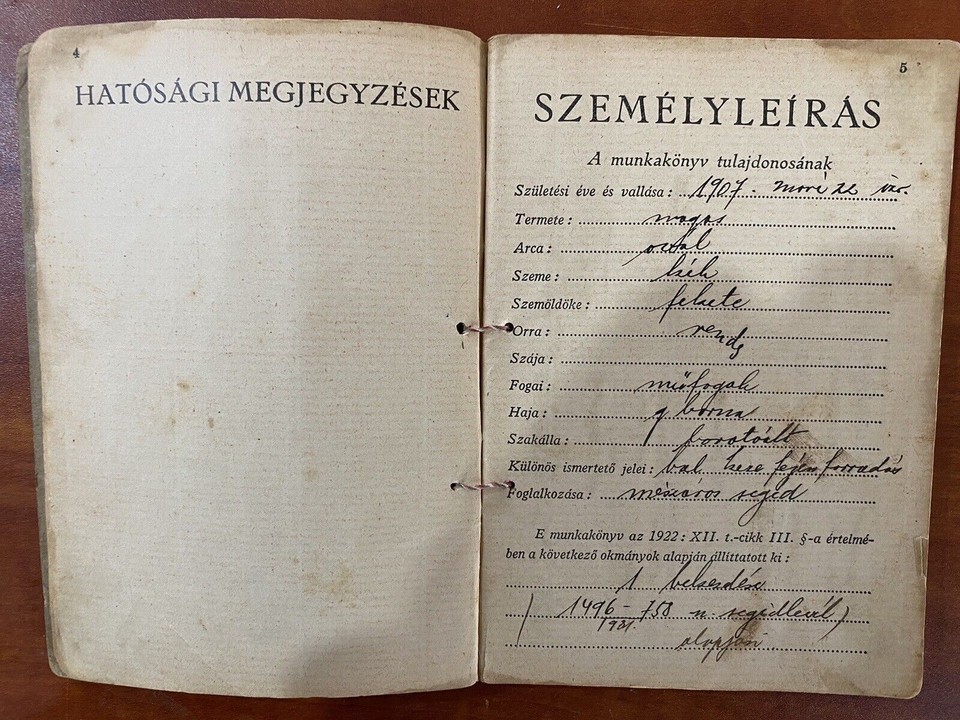 4
HATÓSÁGI MEGJEGYZÉSEK
5
SZEMÉLYLEÍRÁS
A munkakönyv tulajdonosának
Születési éve és vallása: 1907. izr.
Termete: magas
Arca: ovál
Szeme: kék
Szemöldöke: fekete
Orra: rends
Szája:
Fogai: műfogak
Haja: g barna
Szakálla: borotvált
Különös ismertető jelei: bal keze fején forradás
Foglalkozása: mészáros segéd
E munkakönyv az 1922: XII. t.-cikk III. §-a értelmé-
ben a következő okmányok alapján állíttatott ki:
1
(1496–758 n. segédlevél)
931.
alapján